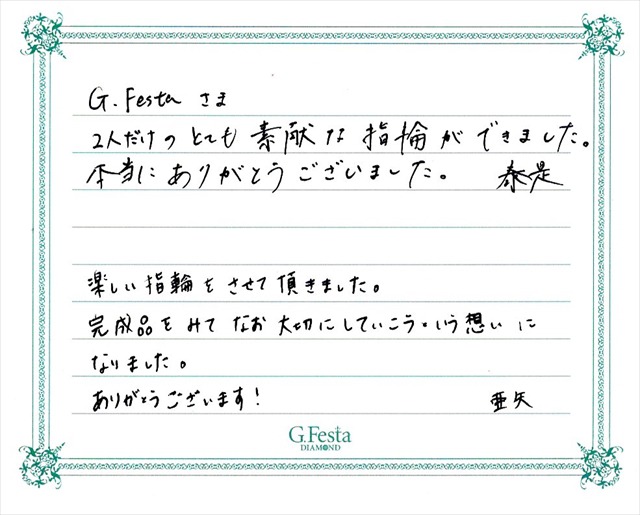 G.Festa さま
2人だけのとても素敵な指輪ができました。
本当にありがとうございました。 泰是
楽しい指輪をさせて頂きました。
完成品をみてなお大切にしていこうという想いに
なりました。
ありがとうございます！ 亜矢
G.Festa
DIAMOND